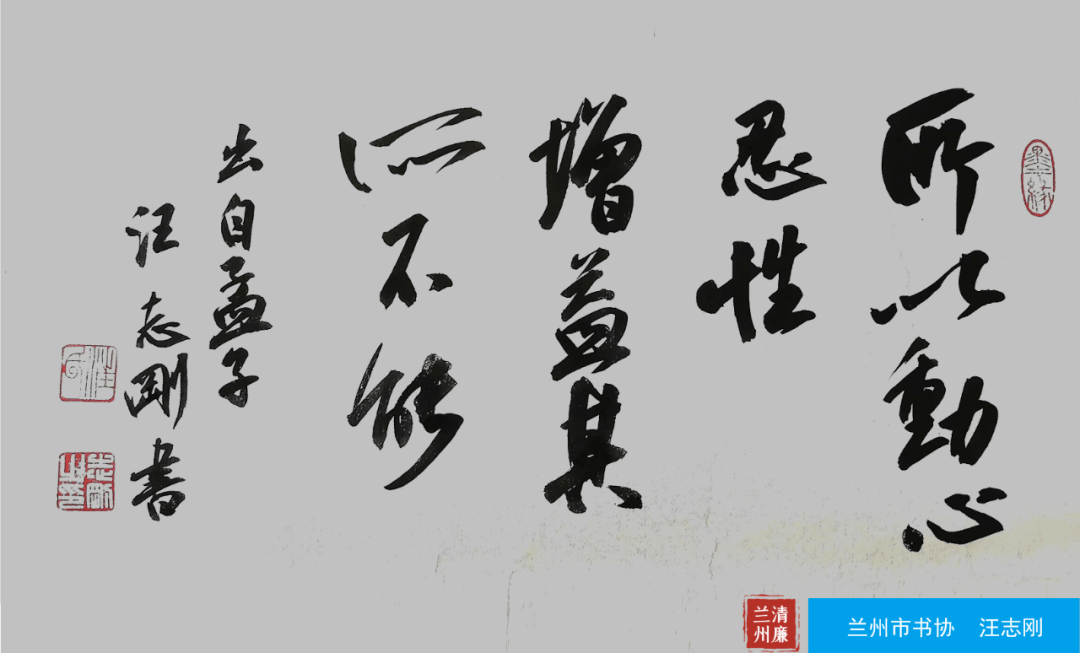 所以動心
忍性
增益其
所不能
出自孟子
汪志剛書
墨緣
志剛之印
清廉兰州
兰州市书协 汪志刚